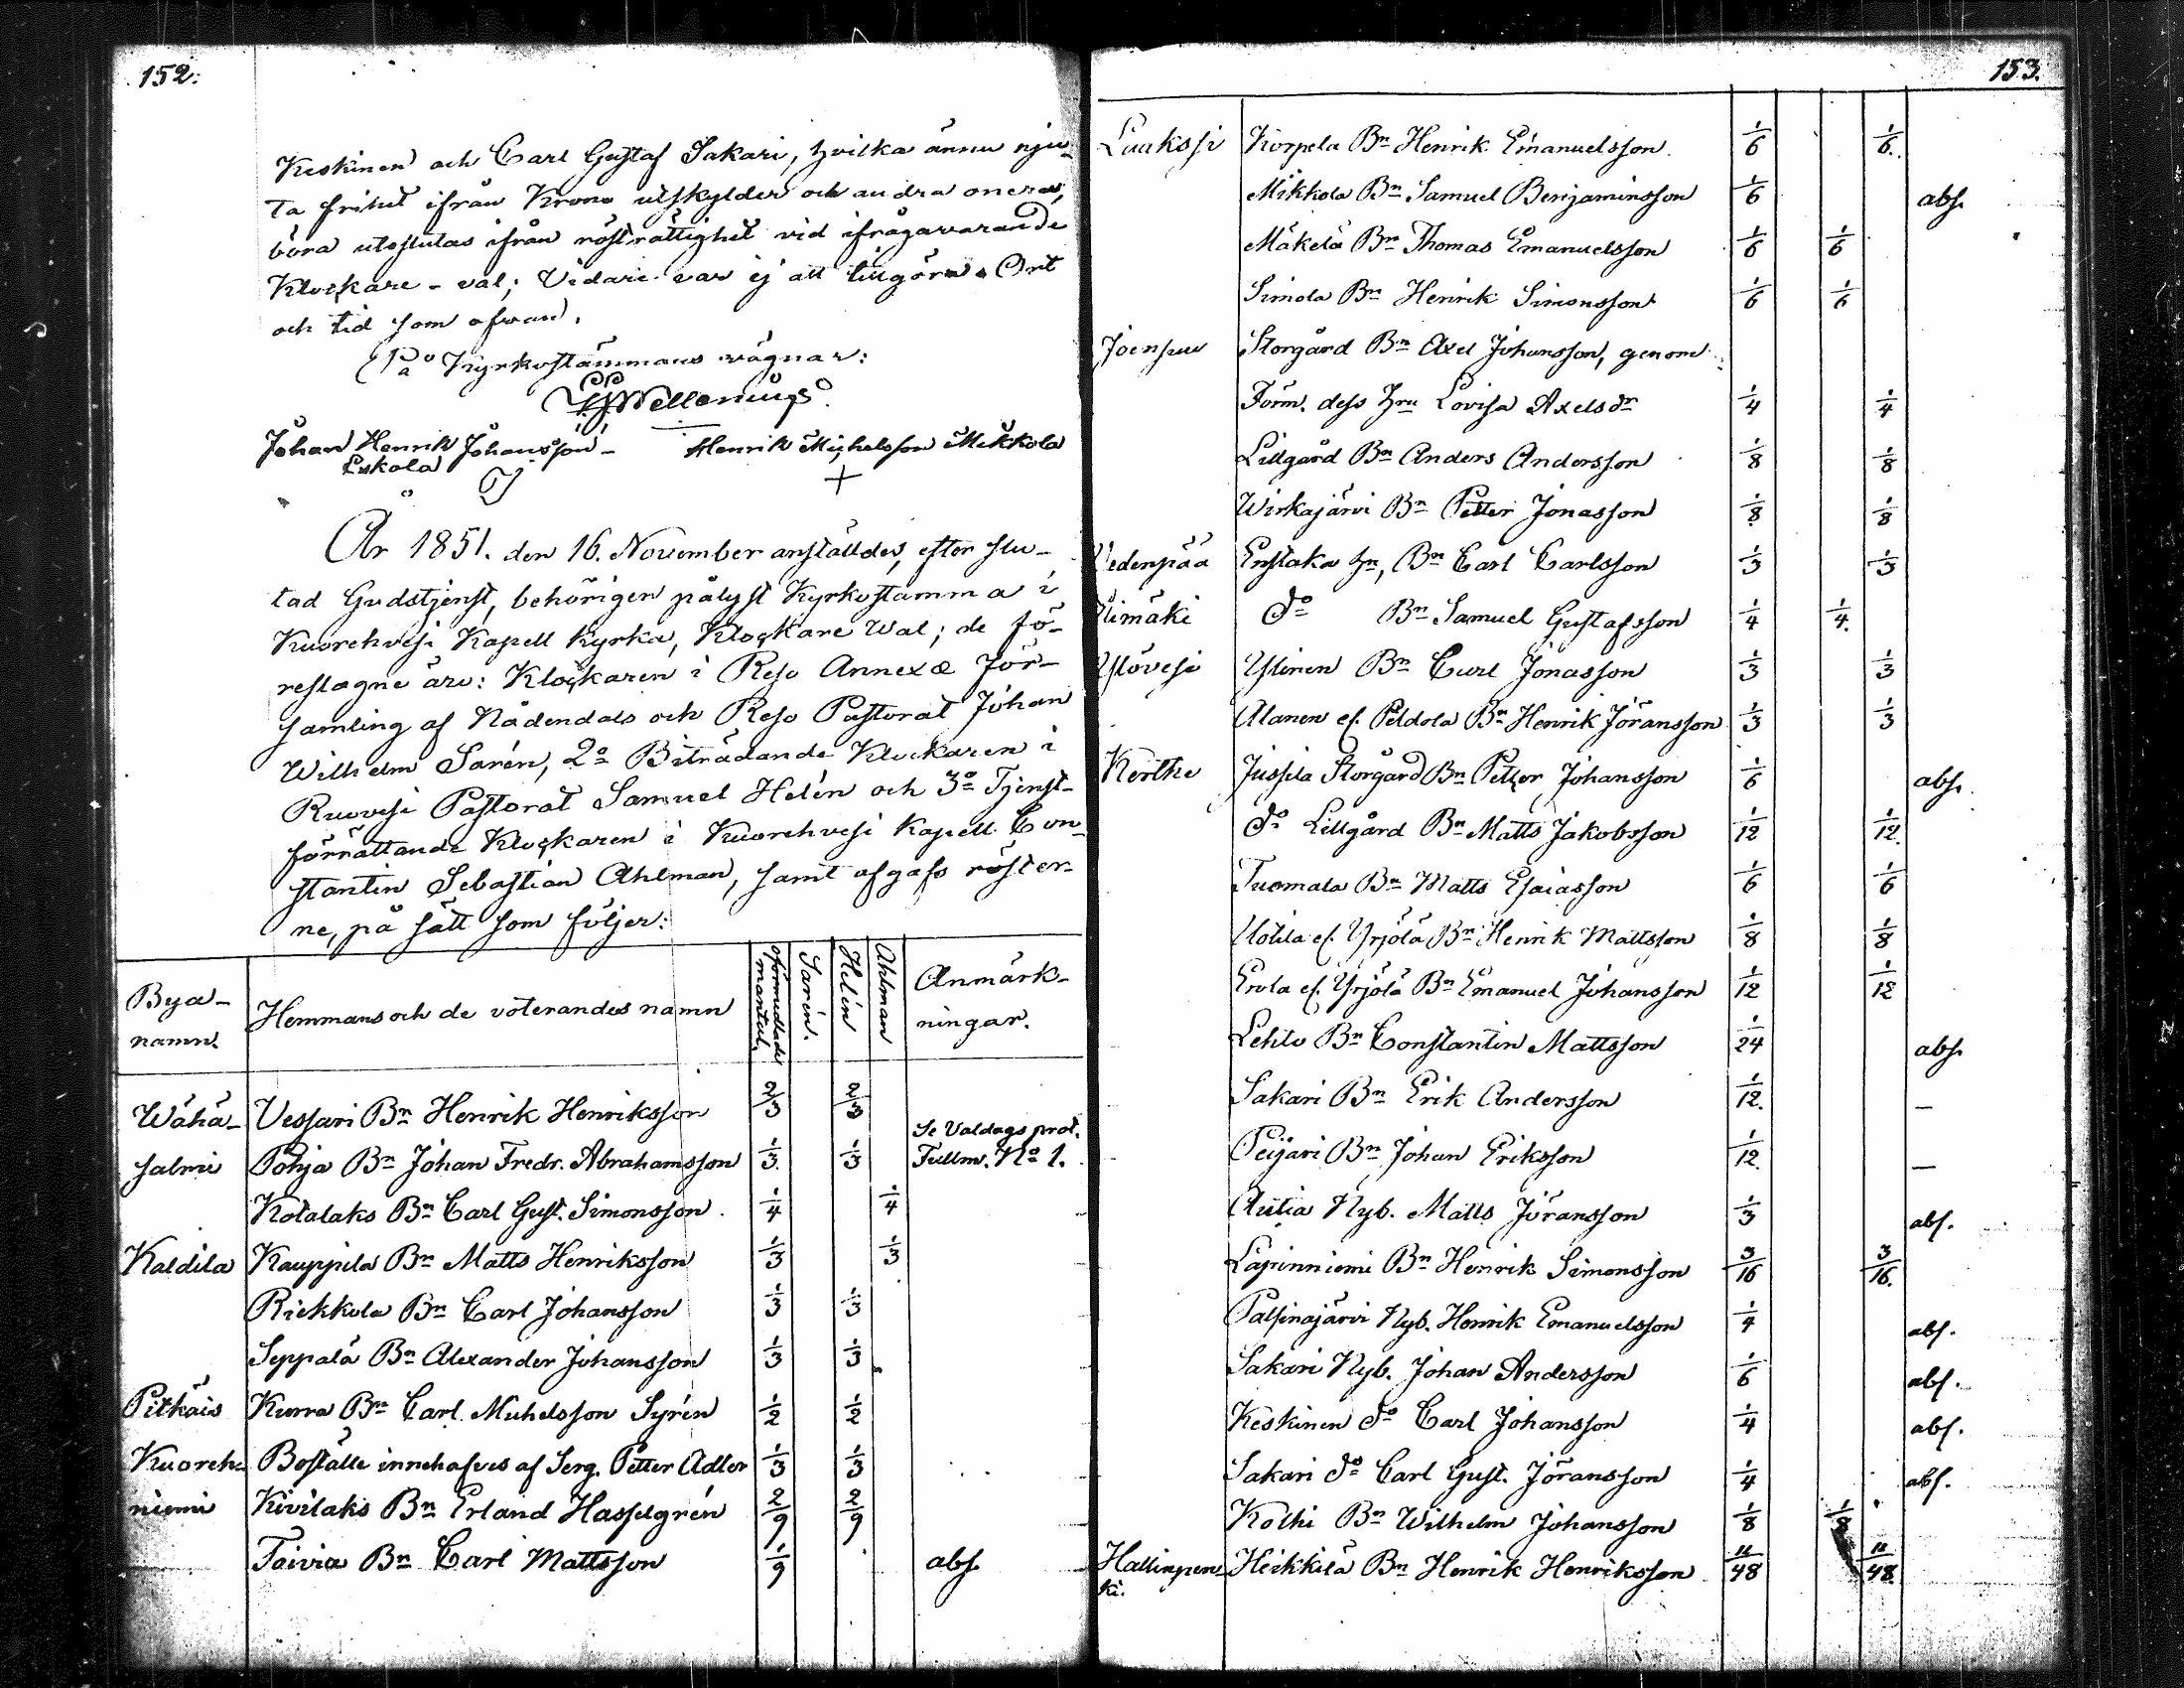 152.
Keskinen och Carl Gustaf Sakari, hvilka ännu nju-
ta frihet ifrån Krono utskylder och andra onera,
böra uteslutas ifrån rösträttighet vid ifrågavarande
Klockare-val; Vidare var ej att tillgöra. Ort
och tid som ofvan.
På Kyrkostämmans vägnar:
Johan Henrik Johansson Henrik Michelsson Mikkola
Eskola
År 1851. den 16. November anställdes, efter slu-
tad Gudstjenst, behörigen pålyst Kyrkostämma i
Kuorehvesi Kapell Kyrka, Klockare Wal; de fö-
reslagne äro: Klockaren i Reso Annexæ För-
samling af Nådendals och Reso Pastorat Johan
Wilhelm Sarén, 2o Biträdande Klockaren i
Ruovesi Pastorat Samuel Helén och 3o Tjenst-
förrättande Klockaren i Kuorehvesi Kapell Con-
stantin Sebastian Ahlman, samt afgafs röster-
ne, på sätt som följer:
Bya-namn. Hemmans och de voterandes namn oförmedlade mantal. Sarén. Helén Ahlman Anmärk-ningar.
Wähä- Vessari Bn Henrik Henriksson 2/3 2/3
salmi Pohja Bn Johan Fredr. Abrahamsson 1/3. 1/3 Se Valdags prot. Fullm. No 1.
Kotalaks Bn Carl Gust. Simonsson 1/4 1/4
Kaldila Kauppila Bn Matts Henriksson 1/3 1/3
Riekkola Bn Carl Johansson 1/3 1/3
Seppälä Bn Alexander Johansson 1/3 1/3
Pitkäis Kurra Bn Carl Michelsson Syrén 1/2 1/2
Kuoreh- Boställe innehafves af Serg. Petter Adler 1/3 1/3
niemi Kivilaks Bn Erland Hasselgrén 2/9 2/9
Toivia Bn Carl Mattsson 1/9 abs.
153.
Luukssi Korpela Bn Henrik Emanuelsson 1/6 1/6.
Mikkola Bn Samuel Benjaminsson 1/6 abs.
Mäkelä Bn Thomas Emanuelsson 1/6 1/6
Simola Bn Henrik Simonsson 1/6 1/6
Joensuu Storgård Bn Axel Johansson, genom
Förm. dess hru Lovisa Axelsdr 1/4 1/4
Lillgård Bn Anders Andersson 1/8 1/8
Wirkajärvi Bn Petter Jonasson 1/8 1/8
Vedenpää Enstaka hn, Bn Carl Carlsson 1/3 1/3
limäki do Bn Samuel Gustafsson 1/4 1/4.
Ylövesi Ylinen Bn Carl Jonasson 1/3 1/3
Alanen el. Peldola Bn Henrik Jöransson 1/3 1/3
Kertte Jussila Storgård Bn Petter Johansson 1/6 abs.
do Lillgård Bn Matts Jakobsson 1/12 1/12.
Tuomala Bn Matts Esaiasson 1/6 1/6
Uotila el. Yrjölä Bn Henrik Mattsson 1/8 1/8
Erola el. Yrjölä Bn Emanuel Johansson 1/12 1/12
Lehto Bn Constantin Mattsson 1/24 abs.
Sakari Bn Erik Andersson 1/12. —
Peijari Bn Johan Eriksson 1/12. —
Autia Nyb. Matts Jöransson 1/3 abs.
Lapinniemi Bn Henrik Simonsson 3/16 3/16.
Palsinajärvi Nyb. Henrik Emanuelsson 1/4 abs.
Sakari Nyb. Johan Andersson 1/6 abs.
Keskinen do Carl Johansson 1/4 abs.
Sakari do Carl Gust. Jöransson 1/4 abs.
Kothi Bn Wilhelm Johansson 1/8 1/8
Hallinpen-ki. Heikkilä Bn Henrik Henriksson 11/48 11/48.